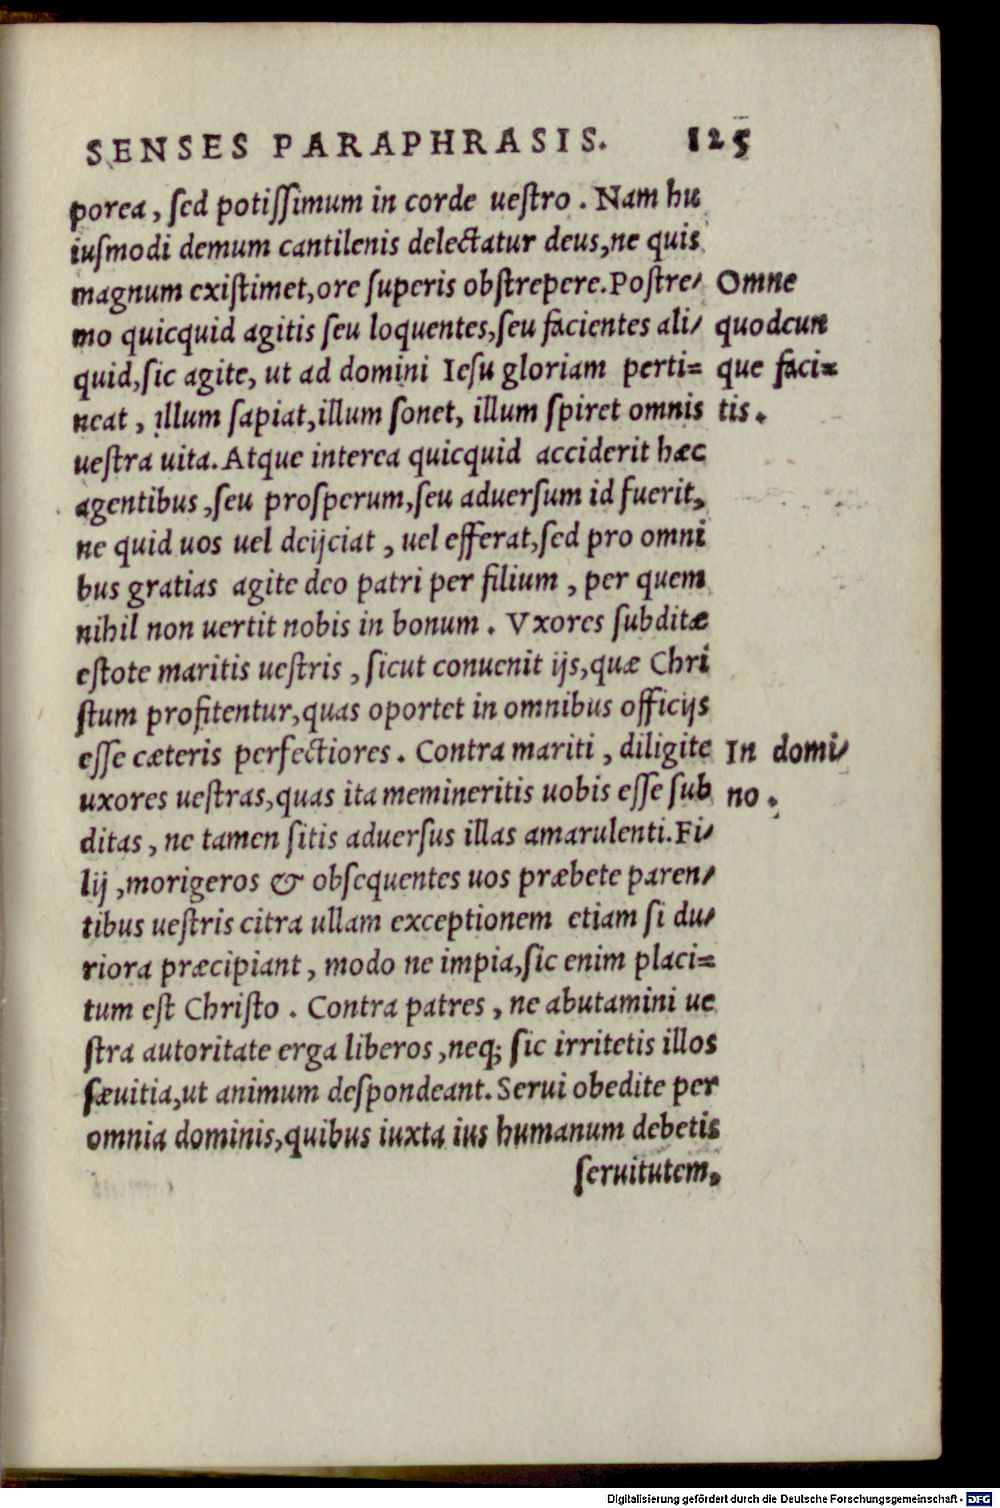 SENSES PARAPHRASIS. 125
porea, ſed potiſſimum in corde ueſtro. Nam hu
iuſmodi demum cantilenis delectatur deus, ne quis
magnum exiſtimet, ore ſuperis obſtrepere. Poſtre/
mo quicquid agitis ſeu loquentes, ſeu facientes ali/
quid, ſic agite, ut ad domini Ieſu gloriam perti=
neat, illum ſapiat, illum ſonet, illum ſpiret omnis
ueſtra uita. Atque interea quicquid acciderit hæc
agentibus, ſeu proſperum, ſeu aduerſum id fuerit,
ne quid uos uel deijciat, uel efferat, ſed pro omni
bus gratias agite deo patri per filium, per quem
nihil non uertit nobis in bonum. Vxores ſubditæ
eſtote maritis ueſtris, ſicut conuenit ijs, quæ Chri
ſtum profitentur, quas oportet in omnibus officijs
eſſe cæteris perfectiores. Contra mariti, diligite
uxores ueſtras, quas ita memineritis uobis eſſe ſub
ditas, ne tamen ſitis aduerſus illas amarulenti. Fi/
lij, morigeros & obſequentes uos præbete paren/
tibus ueſtris citra ullam exceptionem etiam ſi du/
riora præcipiant, modo ne impia, ſic enim placi=
tum eſt Chriſto. Contra patres, ne abutamini ue
ſtra autoritate erga liberos, neq; ſic irritetis illos
ſæuitia, ut animum deſpondeant. Serui obedite per
omnia dominis, quibus iuxta ius humanum debetis
ſeruitutem.
Omne
quodcun
que faci=
tis.
In domi/
no.
Digitalisierung gefördert durch die Deutsche Forschungsgemeinschaft - DFG